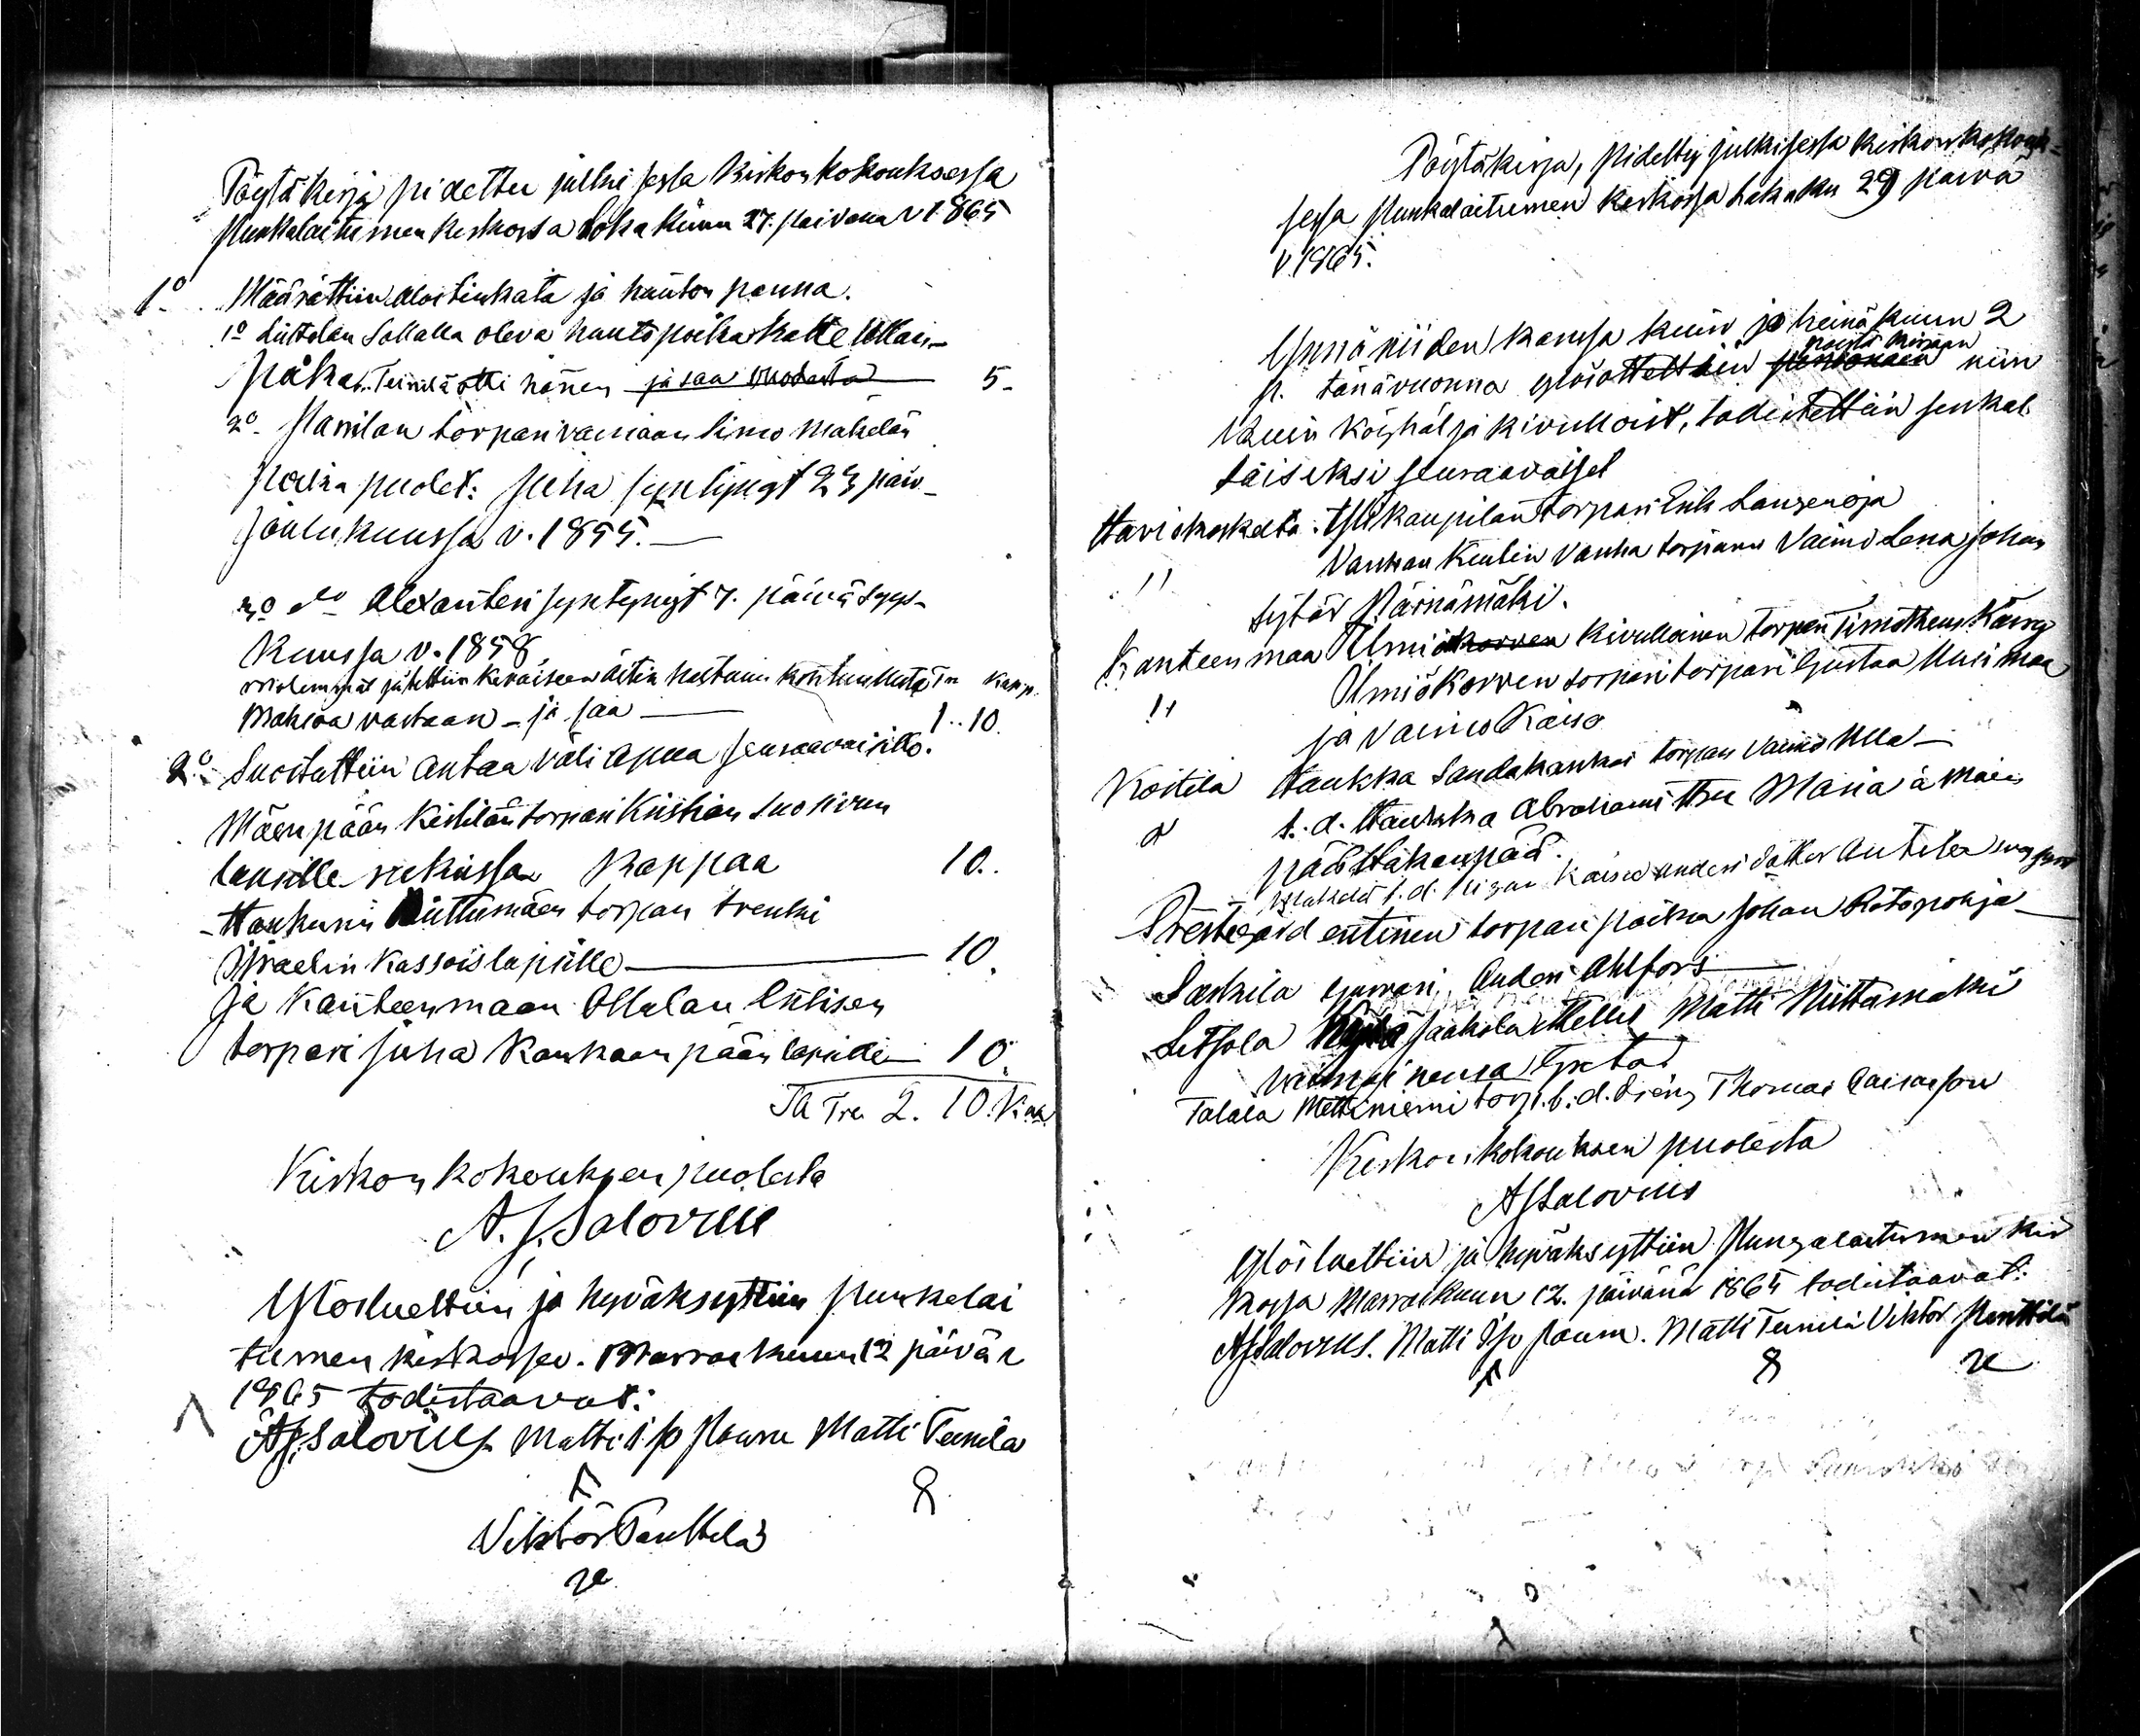 Pöytäkirja pidettu julkisessa Kirkonkokouksessa
Punkalaitumen kirkossa Lokakuun 27. päivänä v 1865
1.o Määrättiin elostinkata ja huuton panna.
1o Liitolan Sallalla oleva huutopoika Kalle Ullan
poika. Teinilä otti hänen ja saa vuodesta 5-
2o Panilan torpan vaivaan Simo Mäkelän
poika puolet: Juha syntynyt 23 päiv
joulukuussa v. 1855.
3o do Alexanteri syntynyt 7. päivä Syys-
kuussa v. 1858
molemmat jätettiin keväiseen äitin hoitoon Tr Kapp.
maksoa vastaan - ja saa 1..10.
2.o Suostuttiin antaa väliapua seuraavaisille.
Mäenpään Kirkilän torpari Kristian Suonivun
lapsille rukiissa Kappaa 10..
Haukurin Niittumäen torpan trenki
Israelin Kassois lapsille 10.
ja Kanteenmaan Ollilan Entisen
torpari Juha Kankaanpään lapsille 10.
Tr 2. 10. Kpp
Kirkonkokouksen puolesta
A. J. Salovius
Ylösluettiin ja hyväksyttiin Punkalai
tumen kirkossa. Marraskuun 12 päivän
1865 todistaavat:
AJ. Salovius Matti Iso Paunu Matti Teinilä
8
Viktor Panttila
Pöytäkirja, pidetty julkisessa kirkonkokouk=
sessa Punkalaitumen kirkossa Lokakuu 29 päivä
v. 1865.
Ynnä niiden kanssa kuin jo heinäkuun 2
p. tänävuonna ylösotettiin poistokirjaan niin
kuin köyhät ja kivulloist, todistettiin senkal
täiseksi seuraavaiset
Haviokoskelta. Yli Kaupilan torpari Erik Lauzenoja
" Vanhan Kuulin vanha torparin vaimo Lena Johan
tytär Pärnämäki.
Kanteenmaa Ilmiökorven Kivulloinen torpari Timotheus Kärry
" Ilmiökorven torpari torpari Gustaa Uusimaa
ja vaimo Kaisa
Koitila Haukka Sandakankar torpan vaimo Ulla
d t. d. Haukka Abrahamitter Maria å Mäen
pää Hakanpää.
Mäkelä t. d. pigan Kaisa Anders dotter Antila
Prestegård entinen torpan poika Johan Rotopohja
Sarkila Anders Ahlfors
Letsola Jaakola itsellis Matti Niittumäki
vaimoinensa Greta
Talala Mettäniemi torp. t. d. Dräng Thomas Caisason
Kirkonkokouksen puolesta
AJ Salovius
Ylösluettiin ja hyväksyttiin Pungalaitumen kir
kossa Marraskuun 12. päivänä 1865 todistaavat:
AJ Salovius. Matti Iso Paunu. Matti Teinilä Viktor Panttila
8